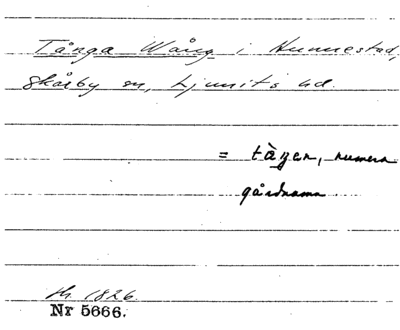 Tånga Wång i Hunnestad,
Skårby sn, Ljunits hd.
= tàgen, numera
gårdnamn
Nr 5666.